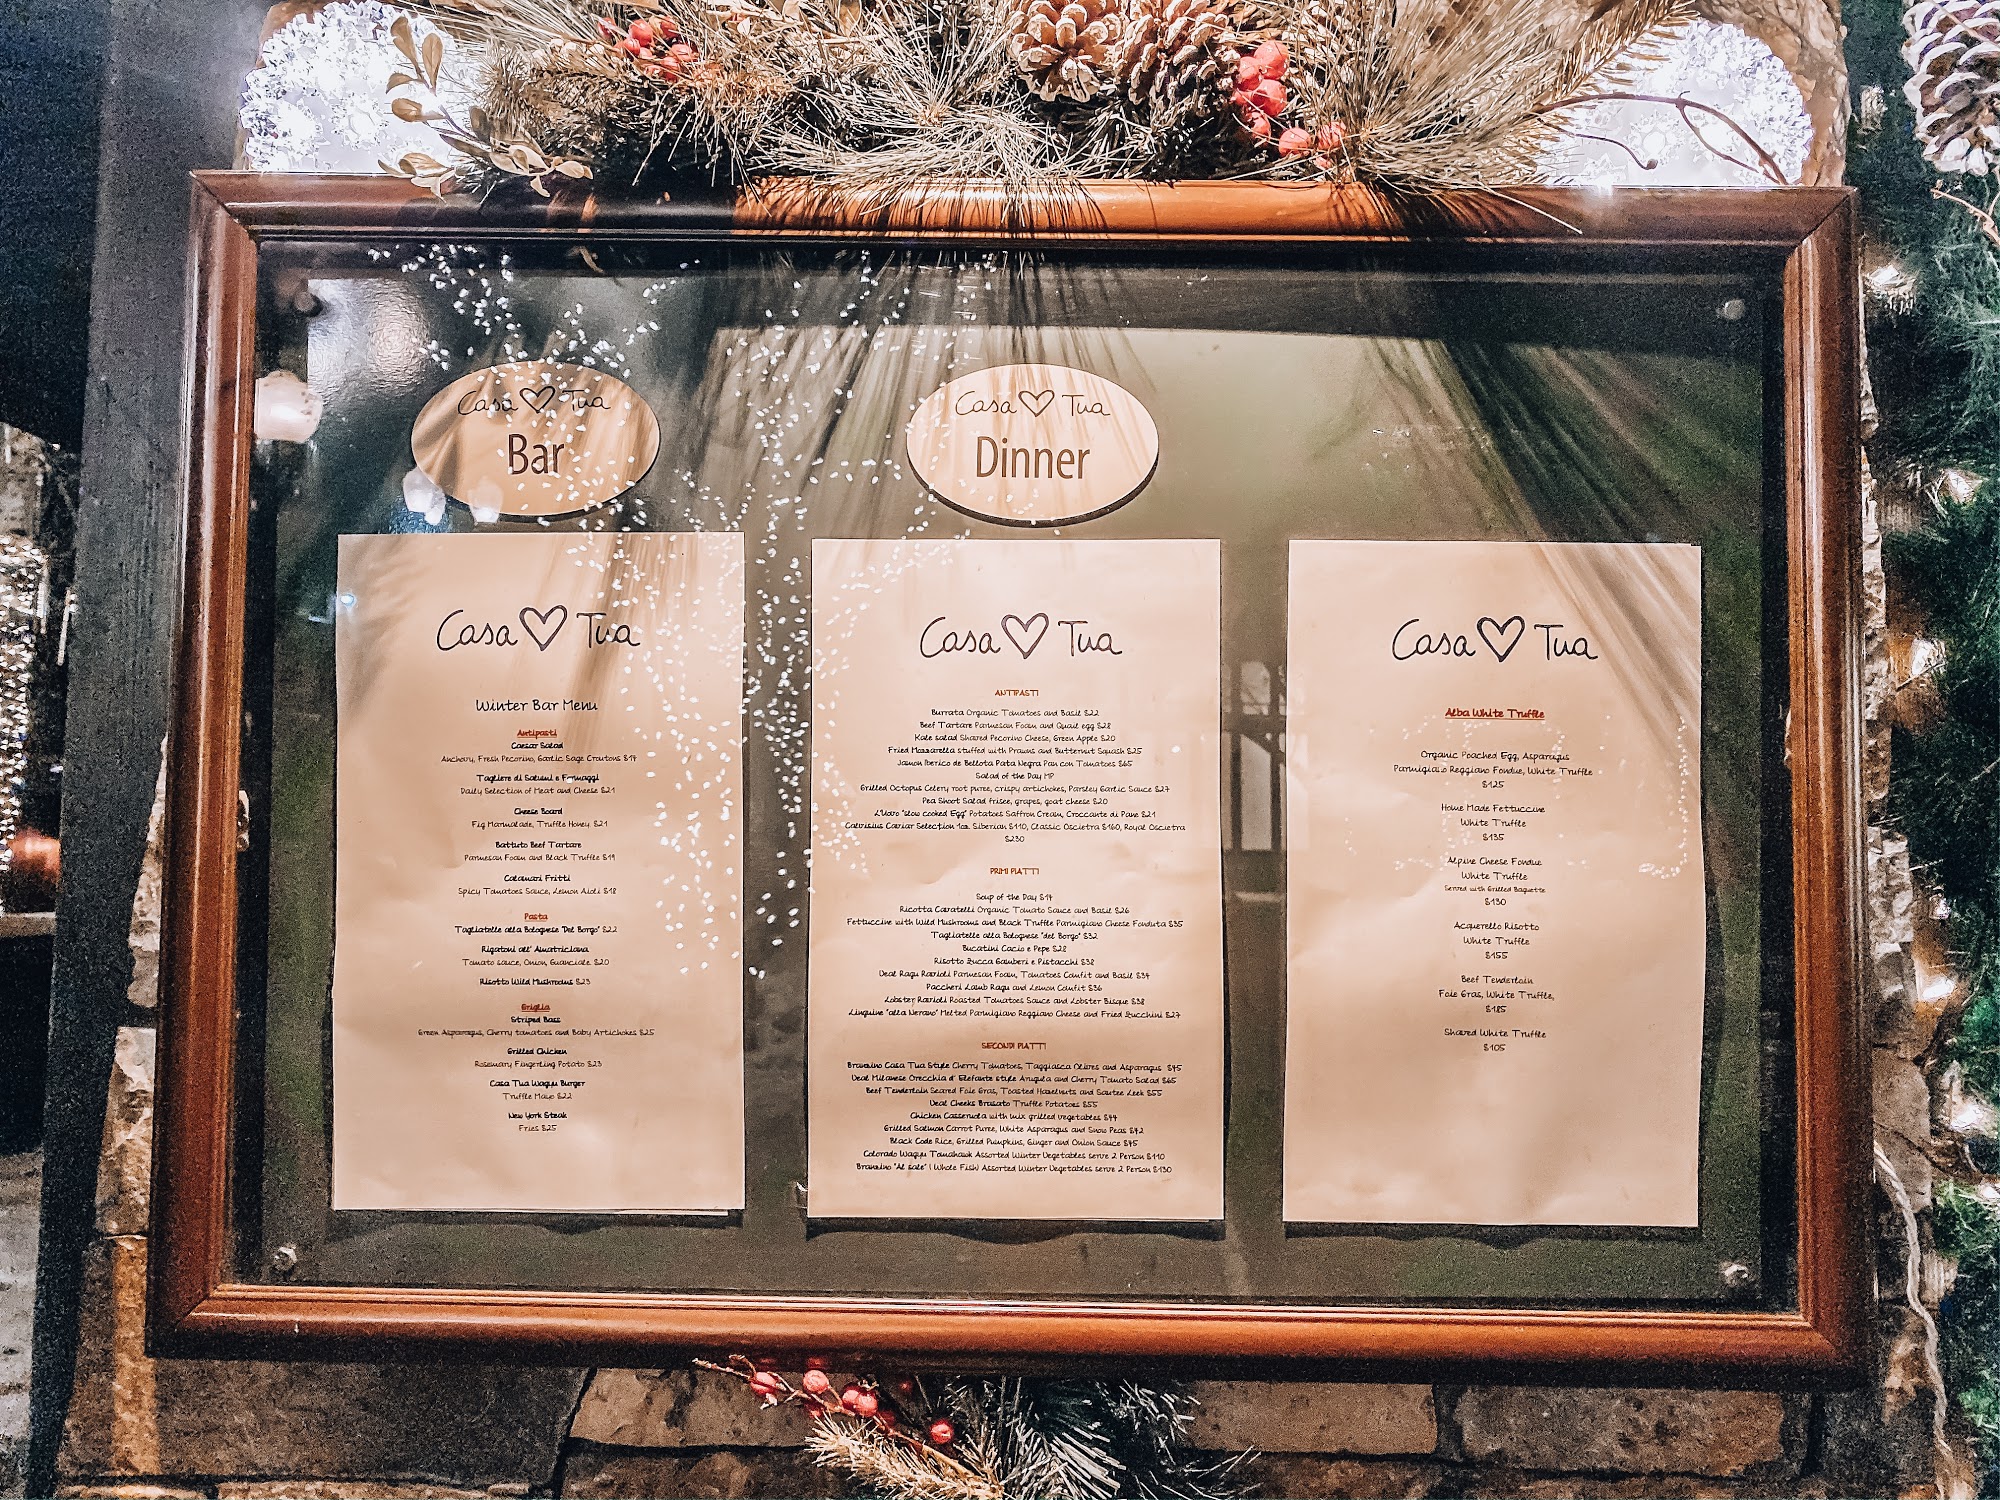 Casa Tua
Bar
Casa Tua
Dinner
Casa Tua
Winter Bar Menu
Antipasti
Caesar Salad
Anchovy, Fresh Pecorino, Garlic Sage Croutons $17
Tagliere di Salumi e Formaggi
Daily Selection of Meat and Cheese $21
Cheese Board
Fig Marmalade, Truffle Honey $21
Battuto Beef Tartare
Parmesan Foam and Black Truffle $19
Calamari Fritti
Spicy Tomatoes Sauce, Lemon Aioli $18
Pasta
Tagliatelle alla Bolognese "Del Borgo" $22
Rigatoni all' Amatriciana
Tomato sauce, Onion, Guanciale $20
Risotto Wild Mushrooms $23
Griglia
Striped Bass
Green Asparagus, Cherry tomatoes and Baby Artichokes $25
Grilled Chicken
Rosemary Fingerling Potato $23
Casa Tua Wagyu Burger
Truffle Mayo $22
New York Steak
Fries $25
Casa Tua
ANTIPASTI
Burrata Organic Tomatoes and Basil $22
Beef Tartare Parmesan Foam and Quail egg $28
Kale salad Shaved Pecorino Cheese, Green Apple $20
Fried Mozzarella stuffed with Prawns and Butternut Squash $25
Jamon Iberico de Bellota Pata Negra Pan con Tomatoes $65
Salad of the Day MP
Grilled Octopus Celery root puree, crispy artichokes, Parsley Garlic Sauce $27
Pea Shoot Salad frisee, grapes, goat cheese $20
L'Uovo "slow cooked Egg" Potatoes Saffron Cream, Croccante di Pane $21
Calvisius Caviar Selection 1oz. Siberian $110, Classic Oscietra $160, Royal Oscietra
$230
PRIMI PIATTI
Soup of the Day $17
Ricotta Cavatelli Organic Tomato Sauce and Basil $26
Fettuccine with Wild Mushrooms and Black Truffle Parmigiano Cheese Fonduta $35
Tagliatelle alla Bolognese "del Borgo" $32
Bucatini Cacio e Pepe $28
Risotto Zucca Gamberi e Pistacchi $38
Veal Ragu Ravioli Parmesan Foam, Tomatoes Confit and Basil $34
Paccheri Lamb Ragu and Lemon Confit $36
Lobster Ravioli Roasted Tomatoes Sauce and Lobster Bisque $38
Linguine "alla Nerano" Melted Parmigiano Reggiano Cheese and Fried Zucchini $27
SECONDI PIATTI
Branzino Casa Tua Style Cherry Tomatoes, Taggiasca Olives and Asparagus $45
Veal Milanese Orecchia d' Elefante style Arugula and Cherry Tomato Salad $65
Beef Tenderloin Seared Foie Gras, Toasted Hazelnuts and Sautee Leek $55
Veal Cheeks Brasato Truffle Potatoes $55
Chicken Casseruola with mix grilled vegetables $44
Grilled Salmon Carrot Puree, White Asparagus and Snow Peas $42
Black Code Rice, Grilled Pumpkins, Ginger and Onion Sauce $45
Colorado Wagyu Tomahawk Assorted Winter Vegetables serve 2 Person $110
Branzino "Al sale" (Whole Fish) Assorted Winter Vegetables serve 2 Person $130
Casa Tua
Alba White Truffle
Organic Poached Egg, Asparagus
Parmigiano Reggiano Fondue, White Truffle
$125
Home Made Fettuccine
White Truffle
$135
Alpine Cheese Fondue
White Truffle
Served with Grilled Baguette
$130
Acquerello Risotto
White Truffle
$155
Beef Tenderloin
Foie Gras, White Truffle,
$185
Shaved White Truffle
$105